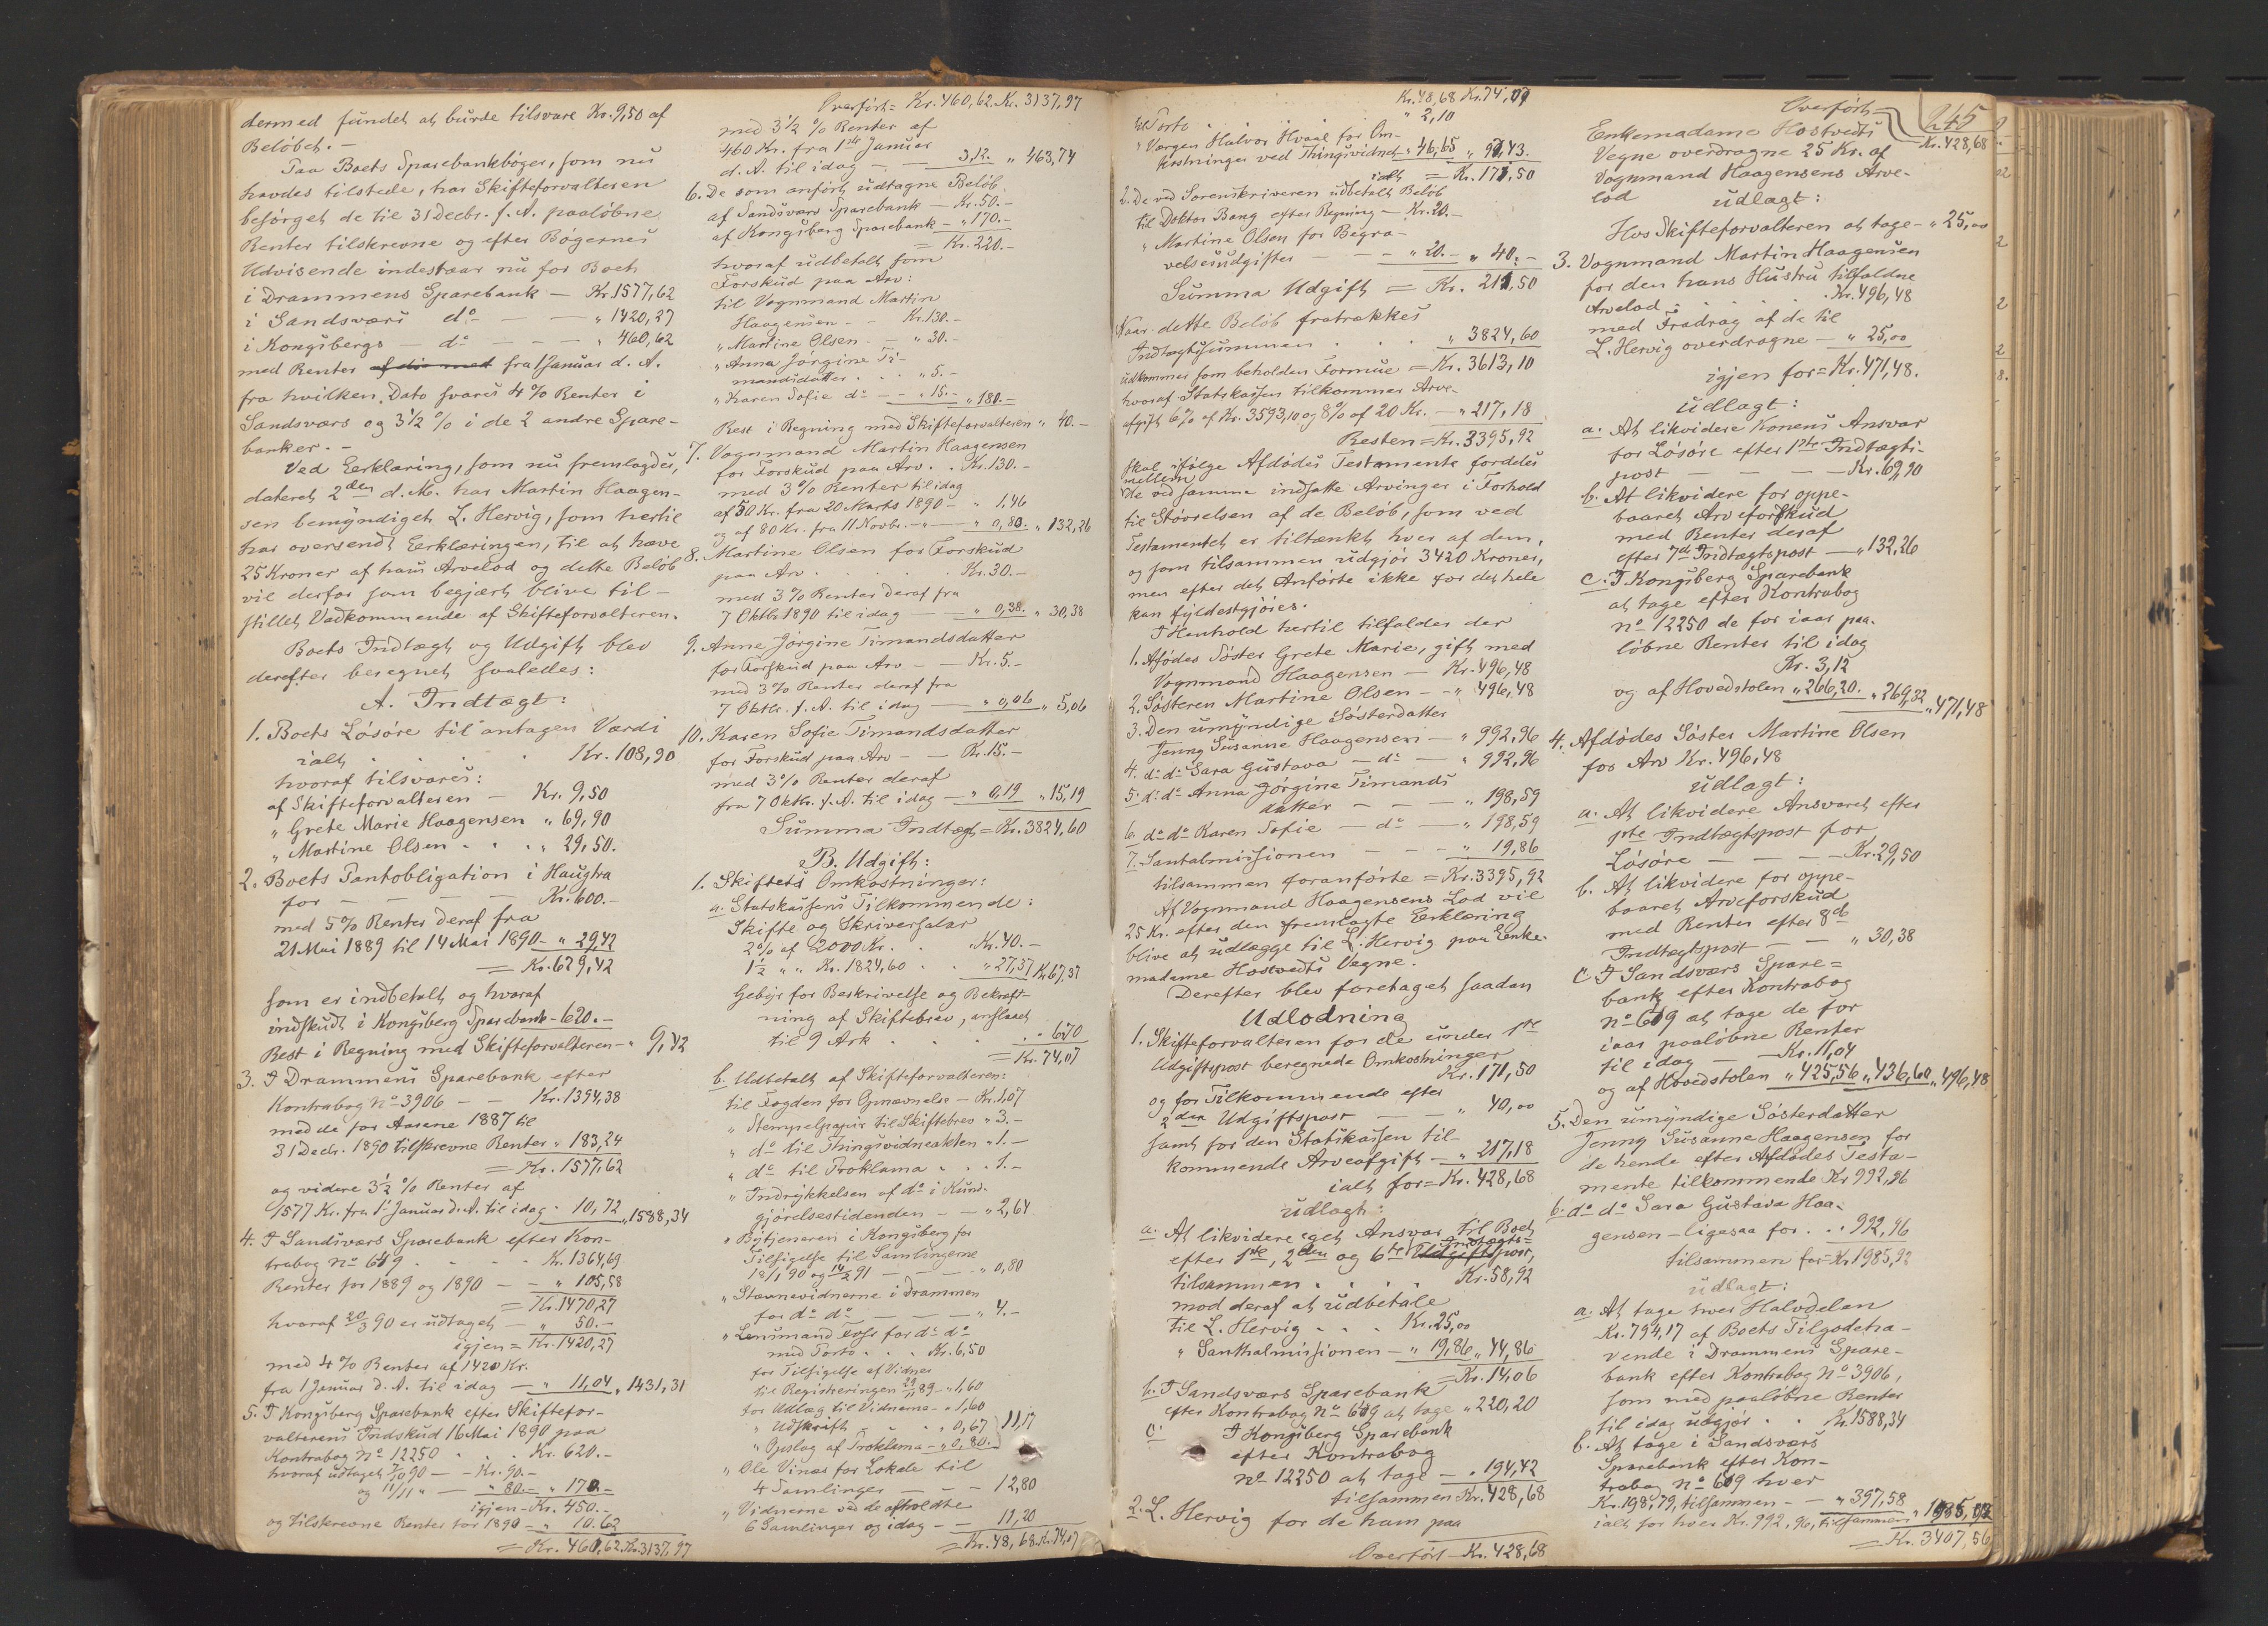 dermed fundet at burde tilsvare Kr. 9,50 af
Beløbet. -
Paa Boets Sparebankbøger, som nu
havdes tilstede, har Skifteforvalteren
besørget de til 31 Decbr. f. A. paaløbne
Renter tilskrevne og efter Bøgernes
Udvisende indestaar nu for Boet
i Drammens Sparebank — Kr. 1577,62
i Sandsværs do — — " 1420,27
i Kongsbergs — do — — " 460,62
med Renter fra 1 Januar d. A.
fra hvilken Dato svares 4 % Renter i
Sandsværs og 3 1/2 % i de 2 andre Spare-
banker. -
Ved Erklæring, som nu fremlagdes,
dateret 2den d. M. har Martin Haagen-
sen bemyndiget L. Hervig, som hertil
har oversendt Erklæringen, til at hæve
25 Kroner af hans Arvelod og dette Beløb
vil derfor som begjært blive til-
stillet Vedkommende af Skifteforvalteren.
Boets Indtægt og Udgift blev
derefter beregnet saaledes:
A. Indtægt:
1. Boets Løsøre til antagen Værdi
ialt . . . Kr. 108,90
hvoraf tilsvares:
af Skifteforvalteren — Kr. 9,50
" Grete Marie Haagensen " 69,90
" Martine Olsen . . . " 29,50.
2. Boets Pantobligation i Haugtra
for — — — — Kr. 600.-
med 5 % Renter deraf fra
21 Mai 1889 til 14 Mai 1890 - " 29,42
= Kr. 629,42
som er indbetalt og hvoraf
indskudt i Kongsberg Sparebank - 620.-
Rest i Regning med Skifteforvalteren - " 9,42
3. I Drammens Sparebank efter
Kontrabog No 3906 — — Kr. 1394,38
med de for Aarene 1887 til
31 Decbr. 1890 tilskrevne Renter " 183,24
= Kr. 1577,62
og videre 3 1/2 % Renter af
1577 Kr. fra 1 Januar d. A. til idag " 10,72 " 1588,34
4. I Sandsværs Sparebank efter Kon-
trabog No 619 . . . Kr. 1364,69
Renter for 1889 og 1890 — — " 105,58
= Kr. 1470,27
hvoraf 20/3 90 er udtaget — " 50.-
igjen = Kr. 1420,27
med 4 % Renter af 1420 Kr.
fra 1 Januar d. A. til idag — " 11,04 " 1431,31
5. I Kongsberg Sparebank efter Skiftefor-
valterens Indskud 16 Mai 1890 paa
Kontrabog No 12250 . . Kr. 620.-
hvoraf udtaget 7/10 90 — - Kr. 90.-
og 11/11 " — " 80.- " 170.-
igjen - Kr. 450.-
og tilskrevne Renter for 1890 = " 10.62
= Kr. 460,62. Kr. 3137,97
Overført = Kr. 460,62. Kr. 3137,97
med 3 1/2 % Renter af
460 Kr. fra 1ste Januar
d. A. til idag — — 3,12. " 463,74
6. De som anført udtagne Beløb
af Sandsværs Sparebank — Kr. 50.-
af Kongsberg Sparebank — " 170.-
= Kr. 220.-
hvoraf udbetalt som
Forskud paa Arv:
til Vognmand Martin
Haagensen - - Kr. 130.-
" Martine Olsen - — " 30.-
" Anna Jørgine Ti-
mandsdatter . . . " 5.-
" Karen Sofie do - - " 15.- " 180.-
Rest i Regning med Skifteforvalteren " 40.-
7. Vognmand Martin Haagensen
for Forskud paa Arv . . Kr. 130.-
med 3 % Renter til idag
af 50 Kr. fra 20 Marts 1890 - " 1,46
og af 80 Kr. fra 11 Novbr. - " — " 0,80. " 132,26
8. Martine Olsen for Forskud
paa Arv . . . . . Kr. 30.-
med 3 % Renter deraf fra
7 Oktbr 1890 til idag — — " 0,38. " 30,38
9. Anne Jørgine Timandsdatter
for Forskud paa Arv — — Kr. 5.-
med 3 % Renter deraf fra
7 Oktbr. f. A. til idag — " 0,06 " 5,06
10. Karen Sofie Timandsdatter
for Forskud paa Arv — — Kr. 15.-
med 3 % Renter deraf
fra 7 Oktbr. f. A. til idag — " 0,19 " 15,19
Summa Indtægt = Kr. 3824,60
B. Udgift:
1. Skiftets Omkostninger:
a. Statskassens Tilkommende:
Skifte og Skriversalær
2 % af 2000 Kr. . . Kr. 40.-
1 1/2 " " Kr. 1824,60 . . " 27,37 Kr. 67,37
Gebyr for Beskrivelse og Bekræft-
ning af Skiftebrev, anslaaet
til 9 Ark . . . . " 6,70
= Kr. 74,07
b. Udbetalt af Skifteforvalteren:
til Fogden for Opnævnelse — Kr. 1,07
" Stempelpapir til Skiftebrev " 3.-
" do til Thingsvidneakten " 1.-
" do til Proklama . . . 1.-
" Indrykkelsen af do i Kund-
gjørelsestidenden — — " 2,64
" Bytjeneren i Kongsberg for
Tilsigelse til Samlingerne
18/1 90 og 14/2 91 — — — " 0,80
" Stævnevidnerne i Drammen
for do do — — — " 4.-
" Lensmand Foss for do do
med Porto . . . Kr. 6,50
for Tilsigelse af Vidner
til Registreringen 29/1 89 - " 1,60
for Udlæg til Vidnerne - " 1,60
" Udskrift — . . " 0,67
" Opslag af Proklama - " 0,80. 11,17
" Ole Vinæs for Lokale til
4 Samlinger — — - 12,80
" Vidnerne ved de afholdte
6 Samlinger og idag — - 11,20
= Kr. 48,68. Kr. 74,07
Kr. 48,68 Kr. 74,07
" Porto " 2,10
" Værgen Halvor Hvaal for Om-
kostninger ved Thingsvidnet " 46,65 " 97,43.
ialt = Kr. 171,50
2. De ved Sorenskriveren udbetalt Beløb
til Doktor Bang efter Regning — Kr. 20.-
" Martine Olsen for Begra-
velsesudgifter — — - " 20.- " 40.-
Summa Udgift = Kr. 211,50
Naar dette Beløb fratrækkes
Indtægtssummen . . . " 3824,60
udkommer som beholden Formue = Kr. 3613,10
hvoraf Statskassen tilkommer Arve-
afgift 6 % af Kr. 3593,10 og 8 % af 20 Kr. — " 217,18
Resten = Kr. 3395,92
skal ifølge Afdødes Testamente fordeles
mellem
de ved samme indsatte Arvinger i Forhold
til Størrelsen af de Beløb, som ved
Testamentet er tiltænkt hver af dem,
og som tilsammen udgjør 3420 Kroner,
men efter det Anførte ikke for det hele
kan fyldestgjøres.
I Henhold hertil tilfalder der
1. Afdødes Søster Grete Marie, gift med
Vognmand Haagensen — Kr. 496,48
2. Søsteren Martine Olsen - - " 496,48
3. Den umyndige Søsterdatter
Jenny Susanne Haagensen — " 992,96
4. do do Sara Gustava — do — " 992,96
5. do do Anna Jørgine Timands
datter — — — " 198,59
6. do do Karen Sofie — do — " 198,59
7. Santalmissionen — — - " 19,86
tilsammen foranførte = Kr. 3395,92
Af Vognmand Haagensens Lod vil
25 Kr. efter den fremlagte Erklæring
blive at udlægge til L. Hervig paa Enke-
madame Hostvedts Vegne.
Derefter blev foretaget saadan
Udlodning
1. Skifteforvalteren for de under 1ste
Udgiftspost beregnede Omkostninger
Kr. 171,50
og for Tilkommende efter
2den Udgiftspost — — " 40,00
samt for den Statskassen til-
kommende Arveafgift — " 217,18
ialt for = Kr. 428,68
udlagt:
a. At likvidere eget Ansvar til Boet
efter 1ste, 2den og 6te Indtægts-
post,
tilsammen . . . . Kr. 58,92
mod deraf at udbetale
til L. Hervig . . . Kr. 25,00
" Santhalmissionen — " 19,86 " 44,86
= Kr. 14,06
b. I Sandsværs Sparebank
efter Kontrabog No 619 at tage " 220,20
c. I Kongsberg Sparebank
efter Kontrabog
No 12250 at tage — " 194,42
tilsammen Kr. 428,68
2. L. Hervig for de ham paa
Overført — Kr. 428,68
245
Overført =
Kr. 428,68
Enkemadame Hostvedts
Vegne overdragne 25 Kr. af
Vognmand Haagensens Arve-
lod udlagt:
Hos Skifteforvalteren at tage - " 25,00
3. Vognmand Martin Haagensen
for den hans Hustru tilfaldne
Arvelod . . . . . Kr. 496,48
med Fradrag af de til
L. Hervig overdragne — " 25,00
igjen for = Kr. 471,48.
udlagt:
a. At likvidere Konens Ansvar
for Løsøre efter 1ste Indtægts-
post — — — — Kr. 69,90
b. At likvidere for oppe-
baaret Arveforskud
med Renter deraf
efter 7de Indtægtspost — " 132,26
c. I Kongsberg Sparebank
at tage efter Kontrabog
No 12250 de for iaar paa-
løbne Renter til idag
Kr. 3,12
og af Hovedstolen " 266,20. " 269,32 " 471,48
4. Afdødes Søster Martine Olsen
for Arv Kr. 496,48
udlagt:
a. At likvidere Ansvaret efter
1ste Indtægtspost for
Løsøre — — — — Kr. 29,50
b. At likvidere for oppe-
baaret Arveforskud
med Renter efter 8de
Indtægtspost — — " 30,38
c. I Sandsværs Spare=
bank efter Kontrabog
No 619 at tage de for
iaar paaløbne Renter
til idag — Kr. 11,04
og af Hovedstolen " 425,56 " 436,60 " 496,48
5. Den umyndige Søsterdatter
Jenny Susanne Haagensen for
de hende efter Afdødes Testa-
mente tilkommende Kr 992,96
6. do do Sara Gustava Haa-
gensen - ligesaa for . . " 992,96
tilsammen for = Kr 1985,92
udlagt:
a. At tage hver Halvdelen
Kr. 794,17 af Boets Tilgodeha-
vende i Drammens Spare-
bank efter Kontrabog No 3906,
som med paaløbne Renter
til idag udgjør . . Kr. 1588,34
b. At tage i Sandsværs
Sparebank efter Kon-
trabog No 619 hver
Kr. 198,79, tilsammen - — " 397,58
ialt for hver Kr. 992,96, tilsammen " 1985,92
= Kr. 3407,56